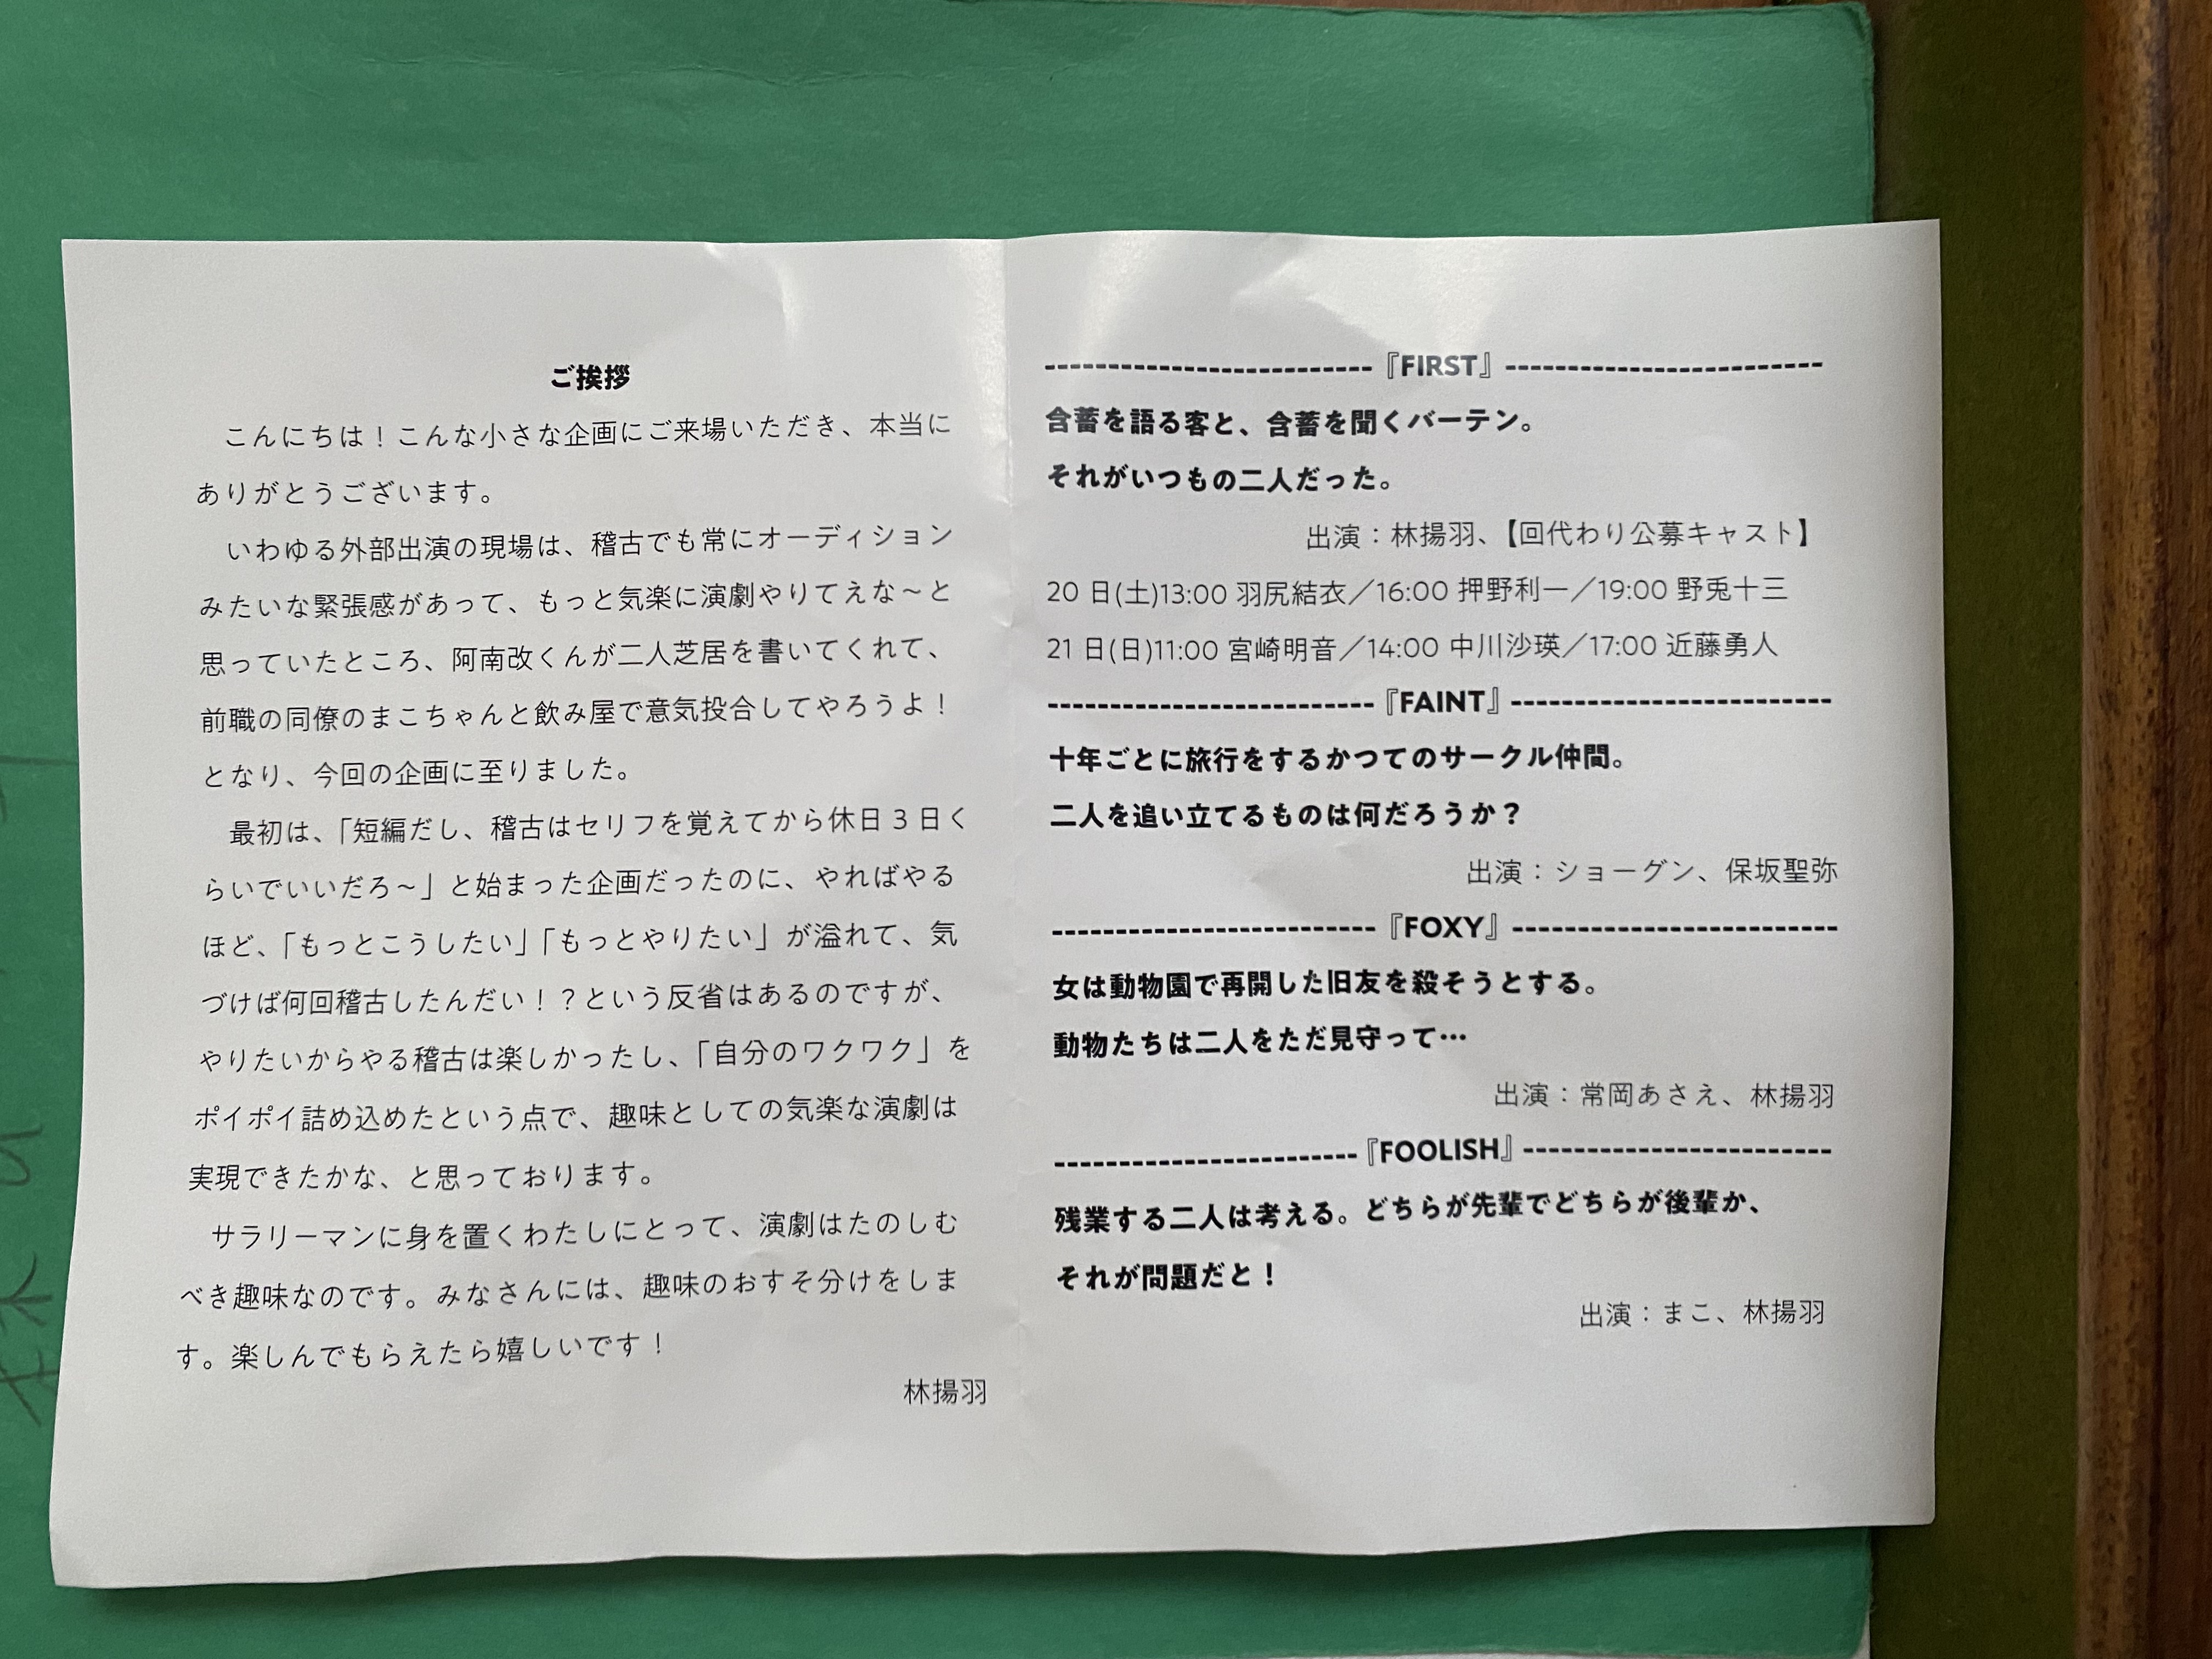 ご挨拶
こんにちは！こんな小さな企画にご来場いただき、本当に
ありがとうございます。
いわゆる外部出演の現場は、稽古でも常にオーディション
みたいな緊張感があって、もっと気楽に演劇やりてえな～と
思っていたところ、阿南改くんが二人芝居を書いてくれて、
前職の同僚のまこちゃんと飲み屋で意気投合してやろうよ！
となり、今回の企画に至りました。
最初は、「短編だし、稽古はセリフを覚えてから休日３日く
らいでいいだろ～」と始まった企画だったのに、やればやる
ほど、「もっとこうしたい」「もっとやりたい」が溢れて、気
づけば何回稽古したんだい！？という反省はあるのですが、
やりたいからやる稽古は楽しかったし、「自分のワクワク」を
ポイポイ詰め込めたという点で、趣味としての気楽な演劇は
実現できたかな、と思っております。
サラリーマンに身を置くわたしにとって、演劇はたのしむ
べき趣味なのです。みなさんには、趣味のおすそ分けをしま
す。楽しんでもらえたら嬉しいです！
林揚羽
--------------------------『FIRST』-------------------------
含蓄を語る客と、含蓄を聞くバーテン。
それがいつもの二人だった。
出演：林揚羽、【回代わり公募キャスト】
20 日(土)13:00 羽尻結衣／16:00 押野利一／19:00 野兎十三
21 日(日)11:00 宮崎明音／14:00 中川沙瑛／17:00 近藤勇人
--------------------------『FAINT』-------------------------
十年ごとに旅行をするかつてのサークル仲間。
二人を追い立てるものは何だろうか？
出演：ショーグン、保坂聖弥
--------------------------『FOXY』--------------------------
女は動物園で再開した旧友を殺そうとする。
動物たちは二人をただ見守って…
出演：常岡あさえ、林揚羽
------------------------『FOOLISH』------------------------
残業する二人は考える。どちらが先輩でどちらが後輩か、
それが問題だと！
出演：まこ、林揚羽